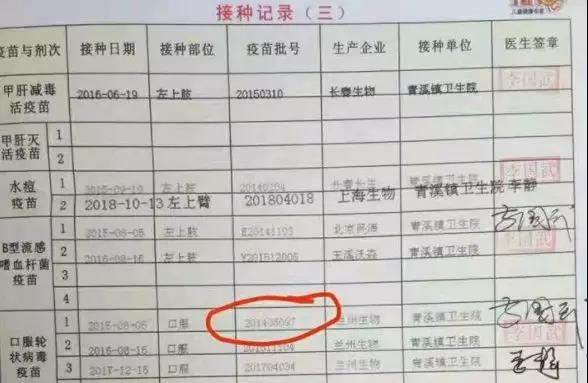 接种记录（三）
疫苗与剂次 接种日期 接种部位 疫苗批号 生产企业 接种单位 医生签章
甲肝减毒活疫苗 2016-06-19 左上肢 20150310 长春生物 青溪镇卫生院 李国武
甲肝灭活疫苗 1
2
水痘疫苗 1 左上肢 青溪镇卫生院 李国武
2 2018-10-13 左上臂 201804018 上海生物 青溪镇卫生院 李静
B型流感嗜血杆菌疫苗 1 2015-08-05 左上肢 北京民海 青溪镇卫生院 李国武
2 2016-08-16 左上肢 玉溪沃森 青溪镇卫生院
3
4
口服轮状病毒疫苗 1 2015-08-05 口服 兰州生物 青溪镇卫生院
2 2016-08-16 口服 兰州生物 青溪镇卫生院
3 2017-12-16 口服 201704034 兰州生物 青溪镇卫生院